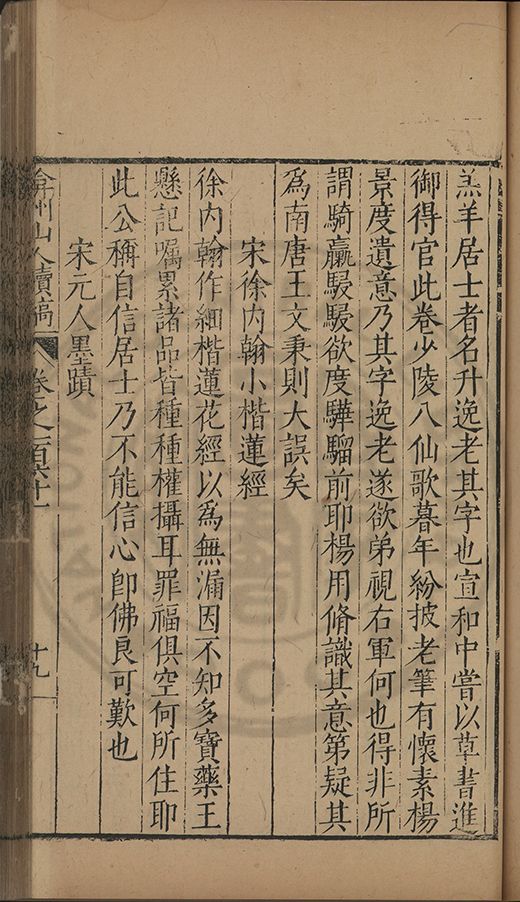 羔羊居士者名升逸老其字也宣和中嘗以草書進
御得官此卷少陵八仙歌暮年紛披老筆有懷素楊
景度遺意乃其字逸老遂欲弟視右軍何也得非所
謂騎羸駸駸欲度驊騮前耶楊用脩識其意第疑其
爲南唐王文秉則大誤矣
宋徐内翰小楷蓮經
徐内翰作細楷蓮花經以爲無漏因不知多寶藥王
懸記囑累諸品皆種種權攝耳罪福俱空何所住耶
此公稱自信居士乃不能信心卽佛良可歎也
宋元人墨蹟
弇州山人續稿 卷之一百六十一 十九